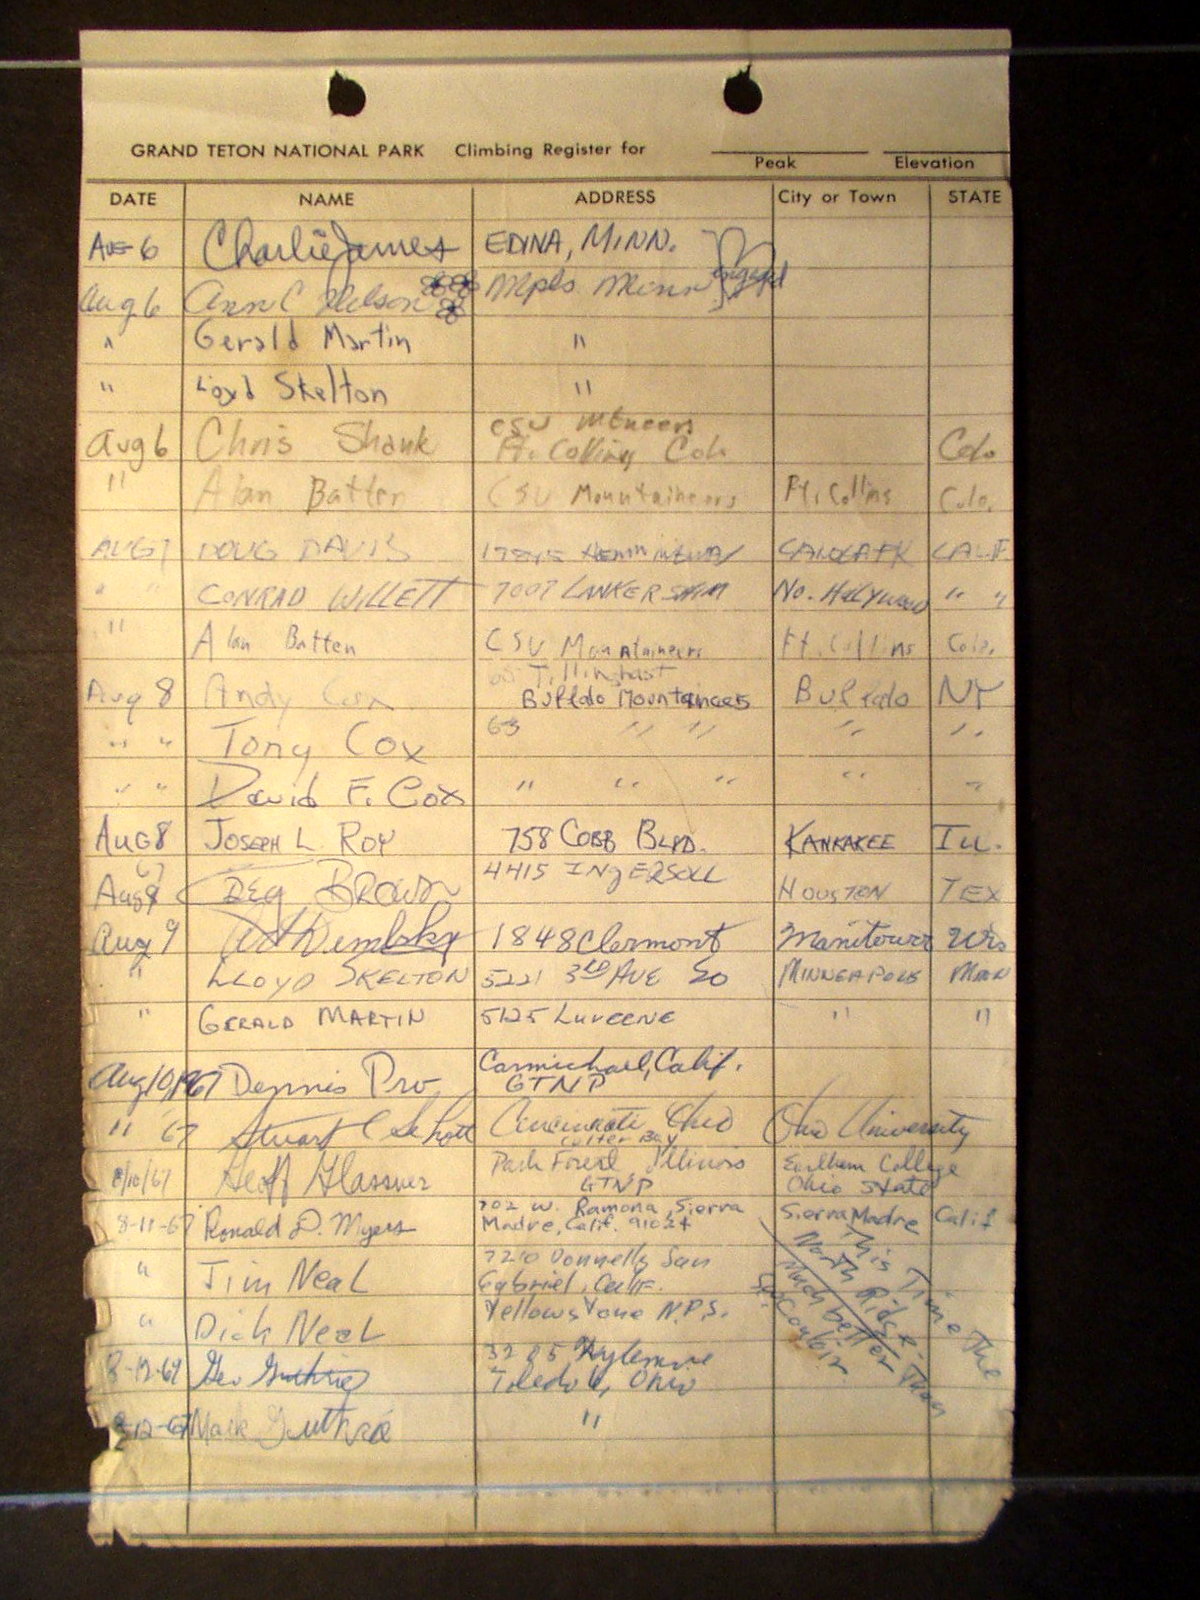 GRAND TETON NATIONAL PARK Climbing Register for
Peak Elevation
DATE NAME ADDRESS City or Town STATE
Aug 6 Charlie James EDINA, MINN.
engaged
Aug 6 Ann C Nelson Mpls Minn
" Gerald Martin "
" Loyd Skelton "
CSU MTNeers
Aug 6 Chris Shank Ft. Collins Colo. Colo
" Alan Batten CSU Mountaineers Ft. Collins Colo.
AUG 7 DOUG DAVIS CALIF
" " CONRAD WILLETT 7007 LANKERSHIM No. Hollywood " "
" Alan Batten CSU Mountaineers Ft. Collins Colo.
Tillinghast
Aug 8 Andy Cox Buffalo Mountaineers Buffalo NY
" " Tony Cox 63 " " " "
" " David F. Cox " " " " "
AUG 8 JOSEPH L. ROY 758 COBB BLVD. KANKAKEE ILL.
67
4415 INGERSOLL
Aug 9 BROWN HOUSTON TEX
Aug 9 Art Dembsky 1848 Clermont Manitowoc Wis
" LLOYD SKELTON 5221 3RD AVE SO MINNEAPOLIS MINN
" GERALD MARTIN 5125 LUVERNE " "
Carmichael, Calif.
Aug 10, 1967 Dennis Pro GTNP
" 67 Stuart C Schott Cincinnati Ohio Ohio University
Colter Bay
Park Forest Illinois Earlham College
8/10/67 Geoff Glassner GTNP Ohio State
702 W. Ramona, Sierra
8-11-67 Ronald D. Myers Madre, Calif. 91024 Sierra Madre Calif
7210 Donnelly San
" Jim Neal Gabriel, Calif.
" Dick Neal Yellowstone N.P.S.
This Time The
North Ridge.
Much better Than
Couloir
3285
8-12-67 Geo Guthrie Toledo 6, Ohio
8-12-67 Mark Guthrie "